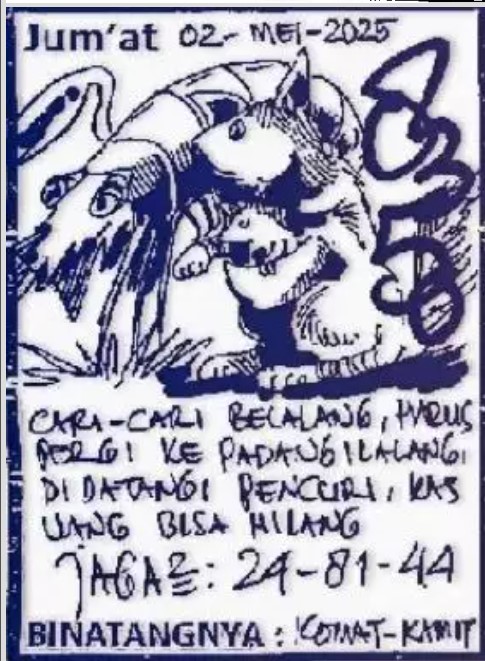 Jum'at 02-MEI-2025
CARI-CARI BELALANG, HARUS
PERGI KE PADANG ILALANG.
DI DATANGI PENCURI, KAS
UANG BISA HILANG
JAGA2: 24-81-44
BINATANGNYA : KOMAT-KAMIT